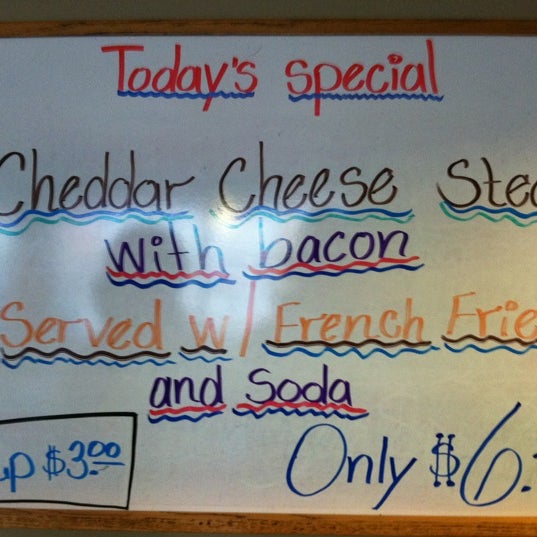 Today's special
Cheddar Cheese
with bacon
Served w/ French
and Soda
$3.00
Only $6.